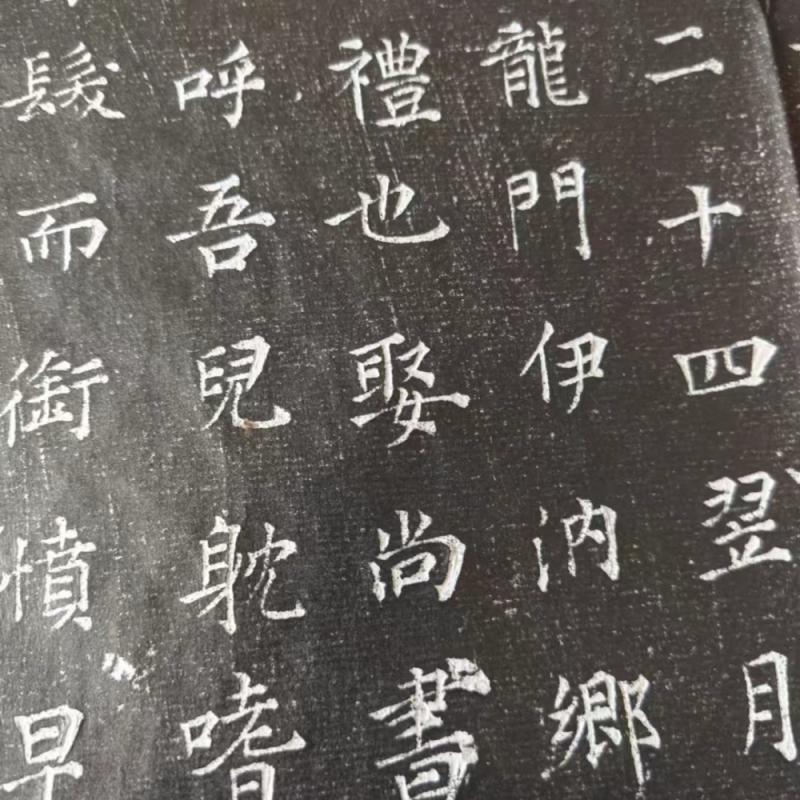 二十四翌月
龍門伊汭鄉
禮也娶尚書
呼吾兒躭嗜
髮而銜憤早